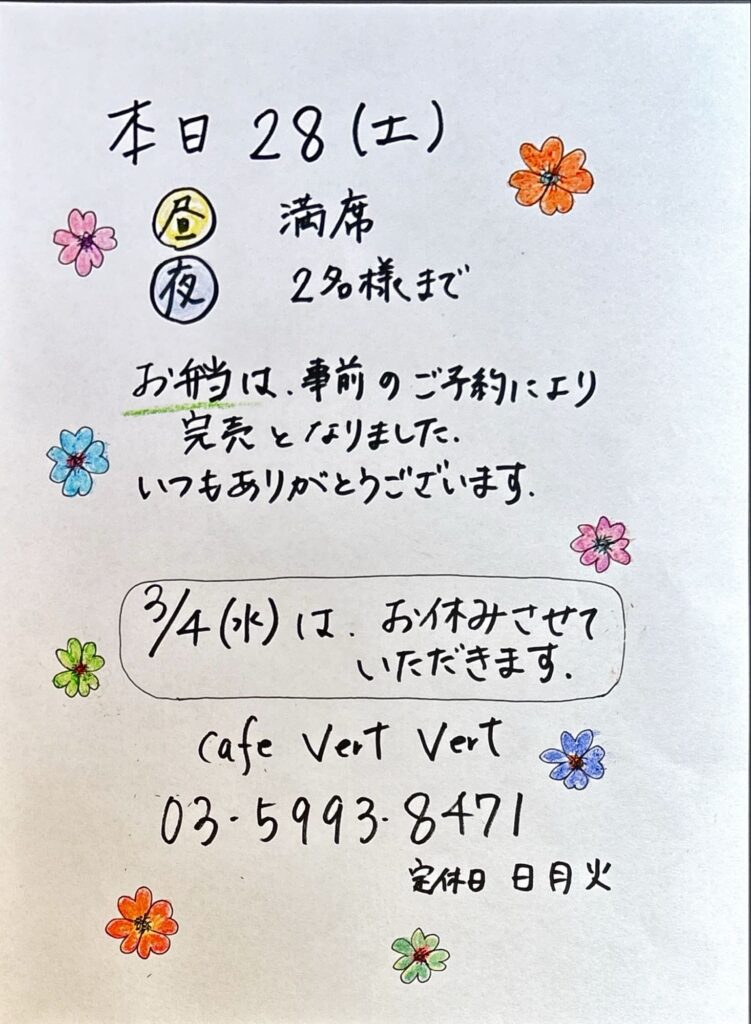 本日 28(土)
昼 満席
夜 2名様まで
お弁当は、事前のご予約により
完売となりました.
いつもありがとうございます.
3/4(水)は、お休みさせて
いただきます.
cafe Vert Vert
03-5993-8471
定休日 日月火